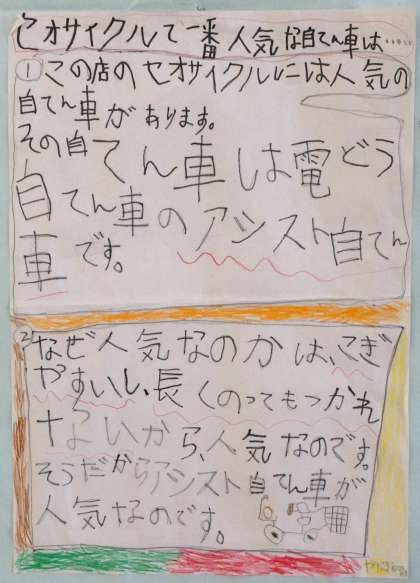 セオサイクルで一番人気な自てん車は……
① この店のセオサイクルには人気の
自てん車があります。
その自てん車は電どう
自てん車のアシスト自てん
車です。
② なぜ人気なのかは、こぎ
やすいし、長くのってもつかれ
ないから、人気なのです。
そうだからアシスト自てん車が
人気なのです。